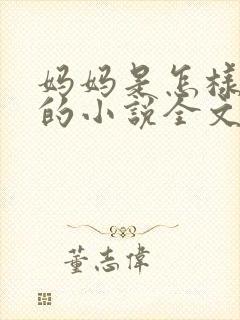 妈妈是怎样
的小说全文
董志偉